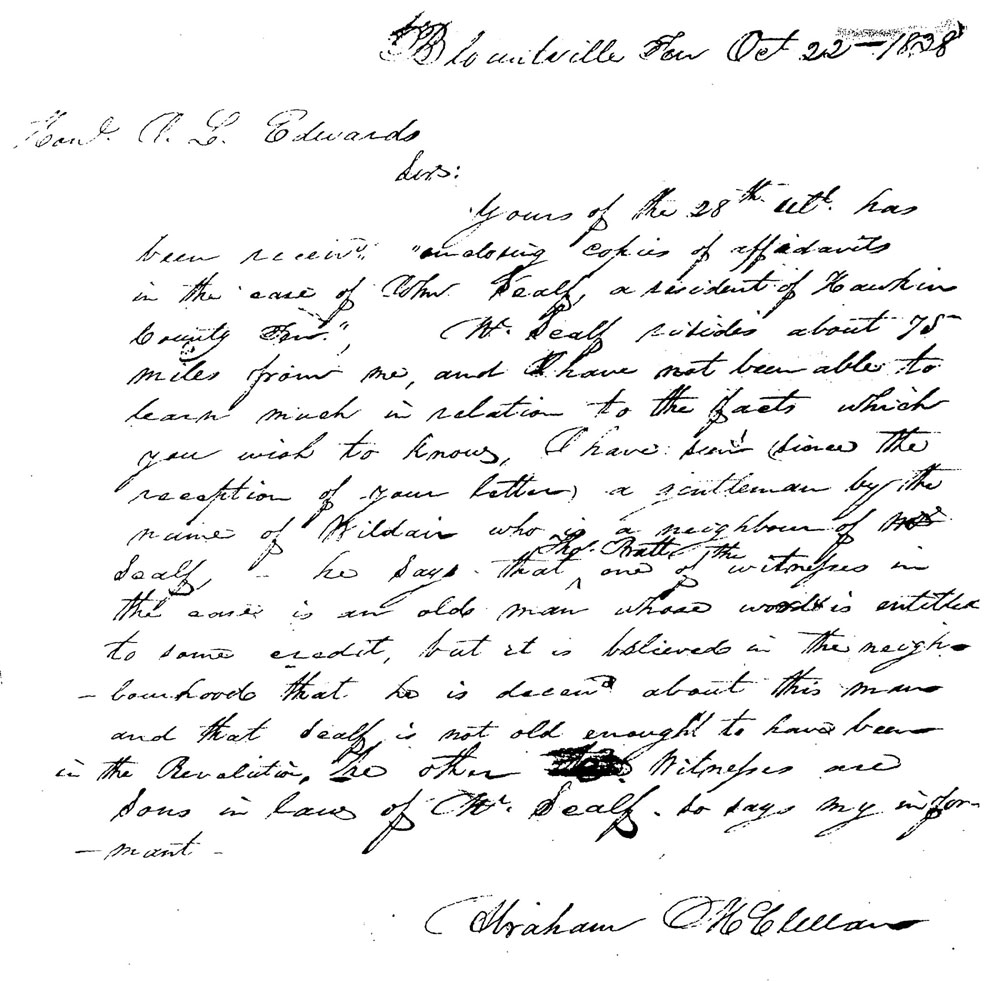 Blountville Ten Oct 22 - 1838
Hond. J. L. Edwards
Sir:
Yours of the 28th ult. has
been receivd. "enclosing copies of affidavits
in the case of John Scalf, a resident of Hawkin
County Ten.", Mr. Scalf resides about 75
miles from me, and I have not been able to
learn much in relation to the facts which
you wish to know, I have seen (since the
reception of your letter) a gentleman by the
name of Wildair who is a neighbour of Mr
Scalf, - he says that one of the witnesses in
Tho. Bratt
the case is an old man whose word is entitled
to some credit, but it is believed in the neigh-
-bourhood that he is deceivd about this man
and that Scalf is not old enough to have been
in the Revolution, The other Witnesses are
Sons in law of Mr. Scalf - so says my infor-
-mant -
Abraham McClellan